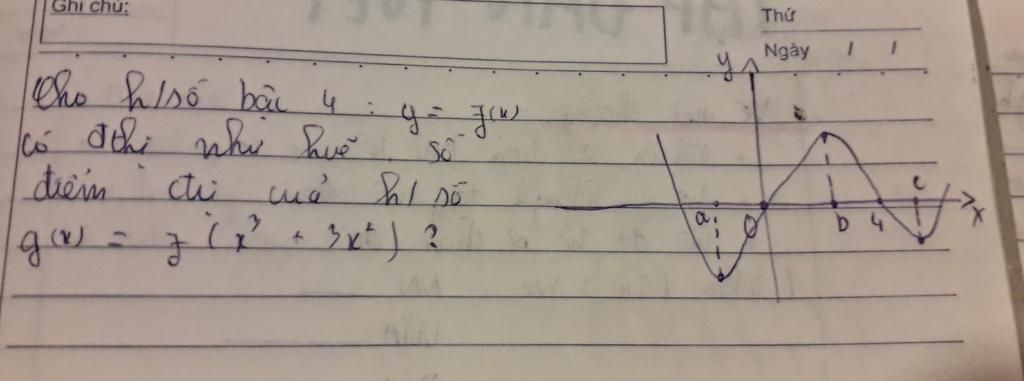 Ghi chú:
Thứ
Ngày / /
Cho h/số bậc 4 : y = f(x)
có đthị như hvẽ. Số
điểm ctrị của h/số
g(x) = f (x³ + 3x²) ?
y
a O b 4 c x